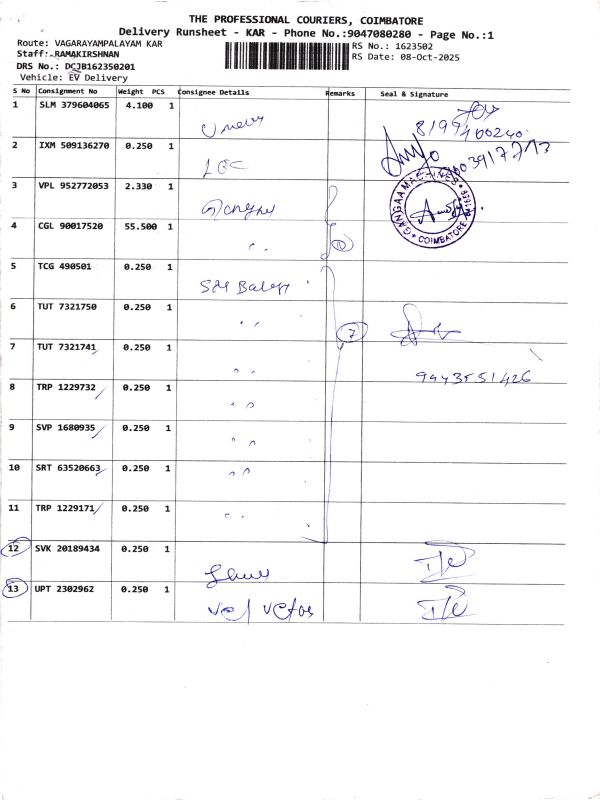 THE PROFESSIONAL COURIERS, COIMBATORE
Delivery Runsheet - KAR - Phone No.:9047080280 - Page No.:1
Route: VAGARAYAMPALAYAM KAR
RS No.: 1623502
Staff:-RAMAKIRSHNAN
RS Date: 08-Oct-2025
DRS No.: DCJB162350201
Vehicle: EV Delivery
S No Consignment No Weight PCS Consignee Details Remarks Seal & Signature
1 SLM 379604065 4.100 1
8199400240
2 IXM 509136270 0.250 1
3 VPL 952772053 2.330 1
GANGAA MACHINES
COIMBATORE
4 CGL 90017520 55.500 1 〃
5 TCG 490501 0.250 1
6 TUT 7321750 0.250 1 〃
7
7 TUT 7321741 0.250 1 〃
9443551426
8 TRP 1229732 0.250 1 〃
9 SVP 1680935 0.250 1 〃
10 SRT 63520663 0.250 1 〃
11 TRP 1229171 0.250 1 〃
12 SVK 20189434 0.250 1
13 UPT 2302962 0.250 1